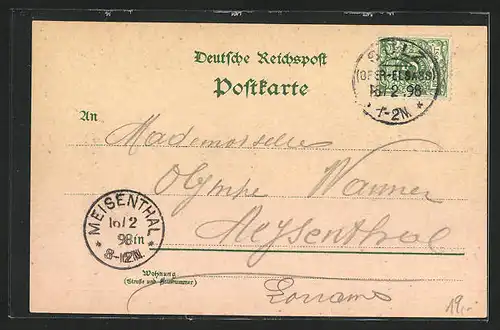 Deutsche Reichspost
Postkarte
(OBER-ELSASS)
16/2 98
1-2N.
An
Mademoiselle
Olympe Wanner
Meysenthal
MEISENTHAL
16/2
98
8-12N.
Wohnung
(Straße und Hausnummer)
19,-